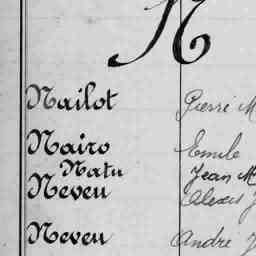 N
Nailot Pierre M
Nairo Emile
Natu Jean M
Neveu Alexis J
Neveu André J